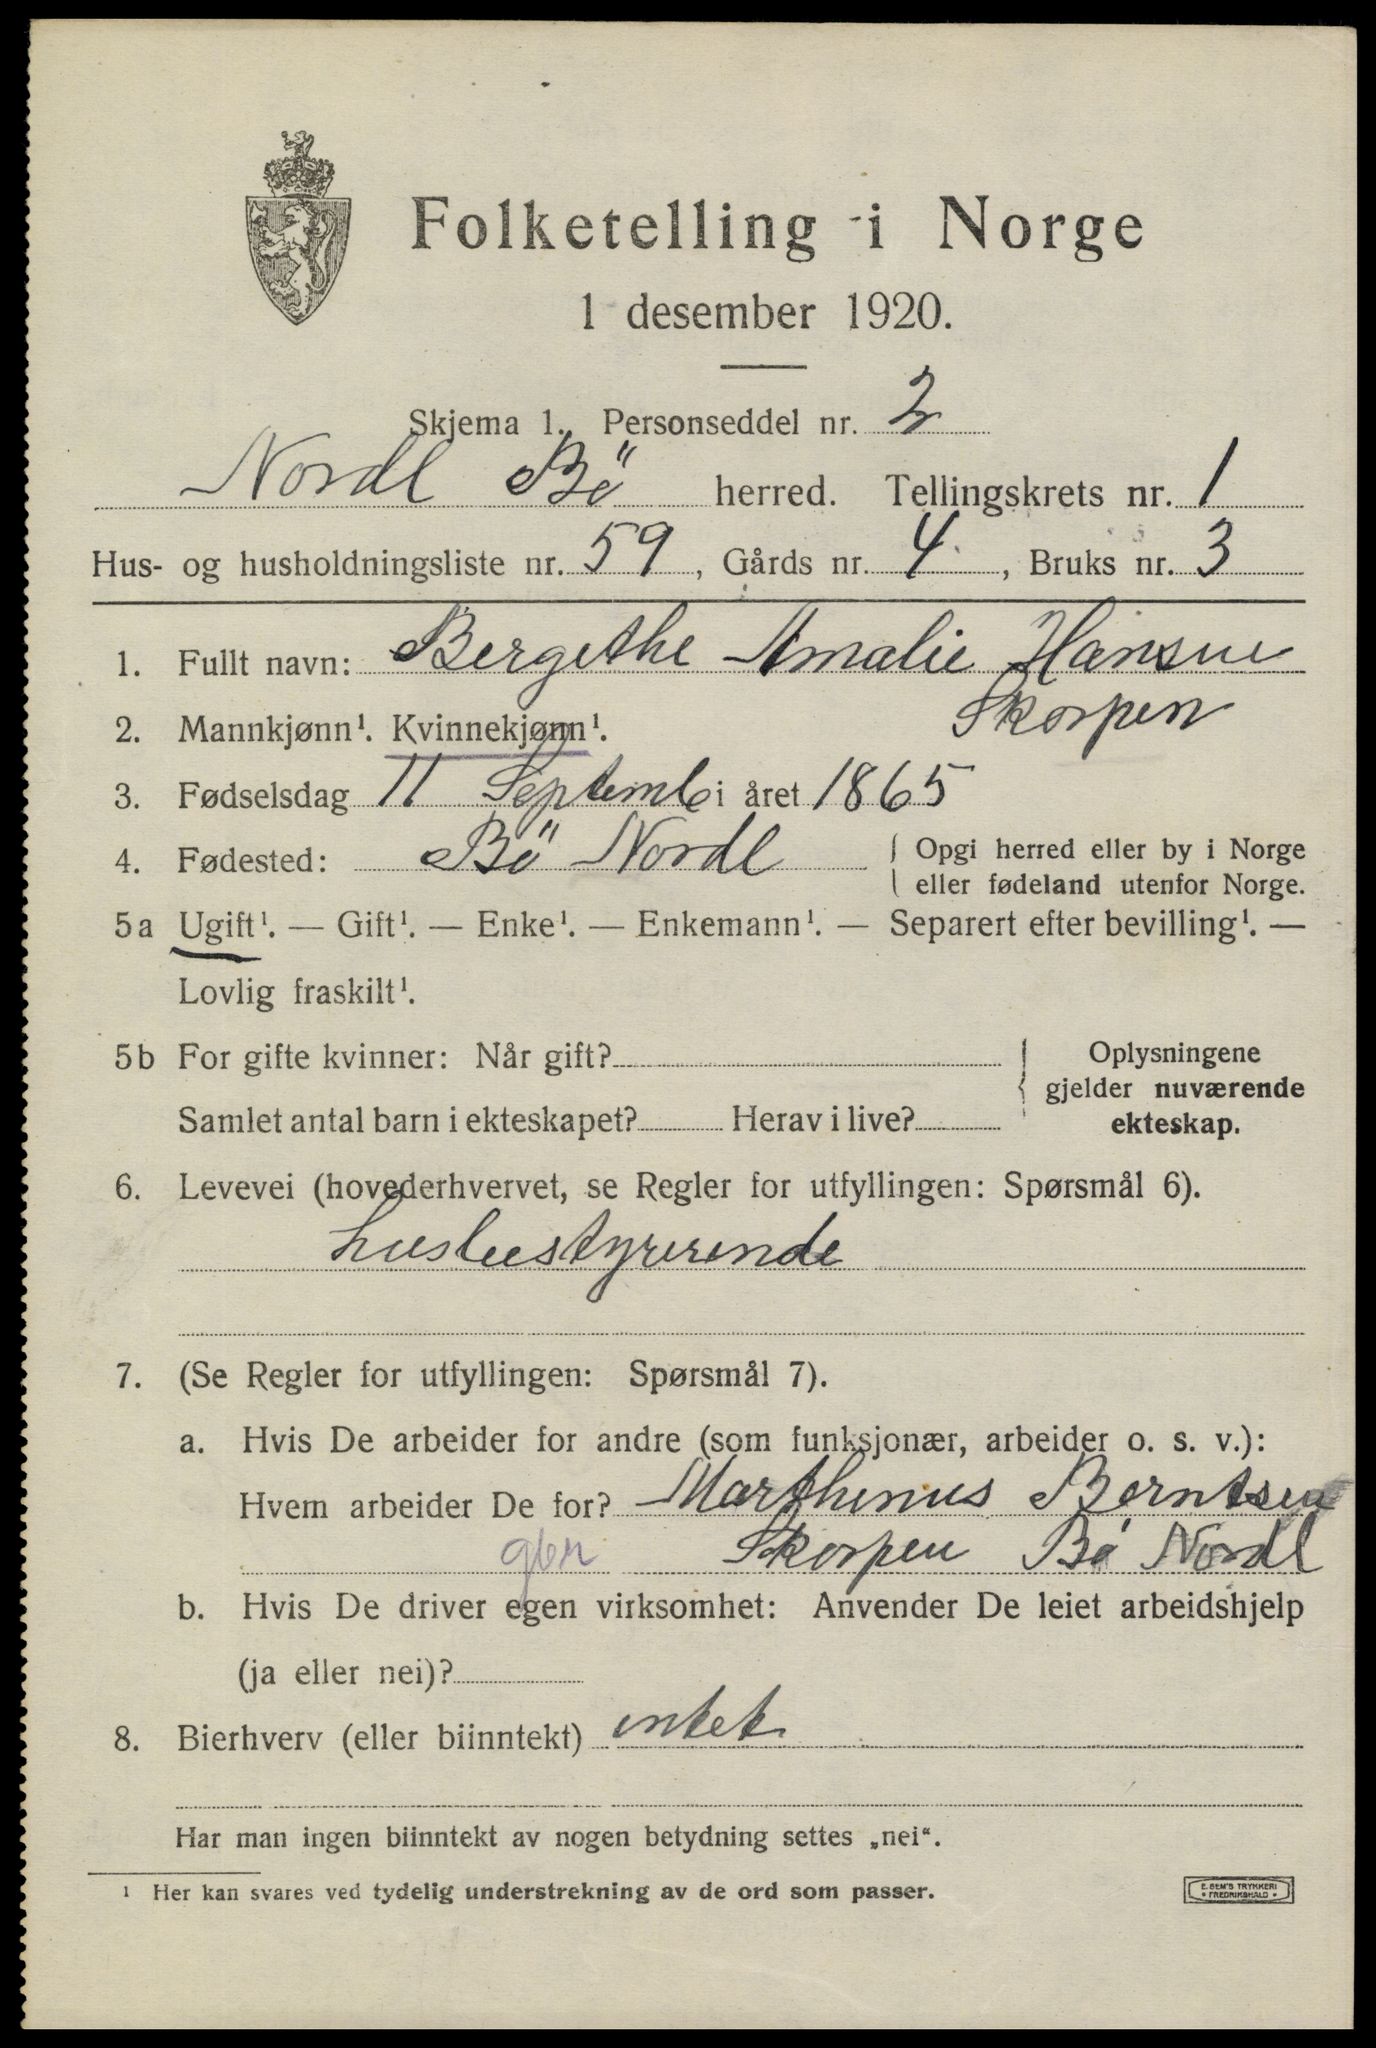 Folketelling i Norge
1 desember 1920.
Skjema 1. Personseddel nr. 2
Nordl Bö herred. Tellingskrets nr. 1
Hus- og husholdningsliste nr. 59, Gårds nr. 4, Bruks nr. 3
1. Fullt navn: Bergethe Amalie Hansen
Skorpen
2. Mannkjønn¹. Kvinnekjønn¹.
3. Fødselsdag 11 Septemb i året 1865
4. Fødested: Bö Nordl { Opgi herred eller by i Norge
eller fødeland utenfor Norge.
5a Ugift¹. — Gift¹. — Enke¹. — Enkemann¹. — Separert efter bevilling¹. —
Lovlig fraskilt¹.
5b For gifte kvinner: Når gift? { Oplysningene
gjelder nuværende
Samlet antal barn i ekteskapet? Herav i live? ekteskap.
6. Levevei (hovederhvervet, se Regler for utfyllingen: Spørsmål 6).
husbestyrerinde
7. (Se Regler for utfyllingen: Spørsmål 7).
a. Hvis De arbeider for andre (som funksjonær, arbeider o. s. v.):
Hvem arbeider De for? Marthinus Berntsen
Skorpen Bö Nordl
b. Hvis De driver egen virksomhet: Anvender De leiet arbeidshjelp
(ja eller nei)?
8. Bierhverv (eller biinntekt) intet
Har man ingen biinntekt av nogen betydning settes „nei“.
¹ Her kan svares ved tydelig understrekning av de ord som passer.
E. SEM'S TRYKKERI
FREDRIKSHALD